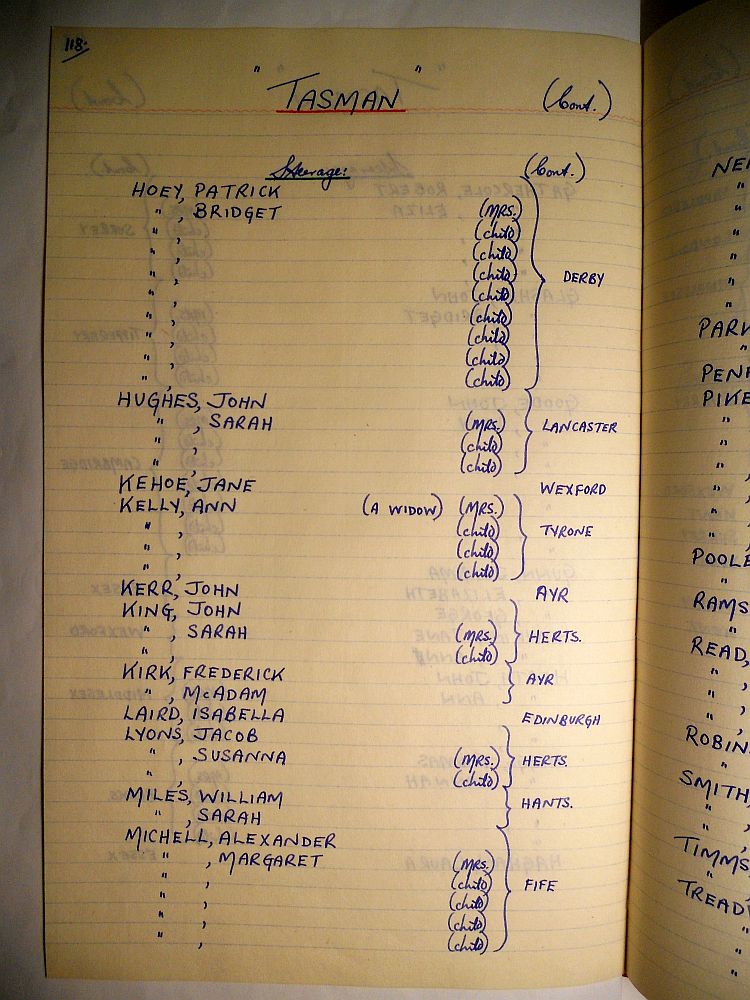 118.
" TASMAN " (Cont.)
Steerage: (Cont.)
HOEY, PATRICK
" , BRIDGET (MRS.)
" , (child)
" , (child)
" , (child) DERBY
" , (child)
" , (child)
" , (child)
" , (child)
" , (child)
HUGHES, JOHN
" , SARAH (MRS.) LANCASTER
" , (child)
" , (child)
KEHOE, JANE WEXFORD
KELLY, ANN (A WIDOW) (MRS.)
" , (child) TYRONE
" , (child)
" , (child)
KERR, JOHN AYR
KING, JOHN
" , SARAH (MRS.) HERTS.
" , (child)
KIRK, FREDERICK
" , McADAM AYR
LAIRD, ISABELLA EDINBURGH
LYONS, JACOB
" , SUSANNA (MRS.) HERTS.
" , (child)
MILES, WILLIAM
" , SARAH HANTS.
MICHELL, ALEXANDER
" , MARGARET (MRS.)
" , (child) FIFE
" , (child)
" , (child)
" , (child)
PIKE
POOLE
RAMS
READ,
ROBIN
SMITH,
TIMMS,
TREAD